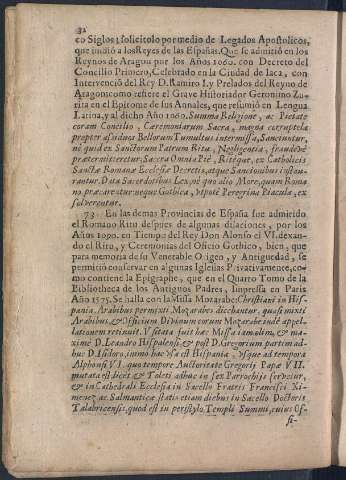 32
co Siglos; solicitolo por medio de Legados Apostolicos,
que indiò a los Reyes de las Españas. Que se admitiò en los
Reynos de Aragon por los Años 1060. con Decreto del
Concilio Primero, Celebrado en la Ciudad de Iaca, con
Intervenciò del Rey D. Ramiro I. y Prelados del Reyno de
Aragon: como refiere el Grave Historiador Geronimo Zu-
rita en el Epitome de sus Annales, que resumiò en Lengua
Latina, y al dicho Año 1060. Summa Religione, ac Pietate
coram Concilio, Ceremoniarum Sacra, magna corruptela
propter assiduos Bellorum Tumultus intermissa, Sanciuntur,
nè quid ex Sanctorum Patrum Ritu, Negligentia, fraudève
prætermitteretur: Sacra Omnia Piè, Ritèque, ex Catholicis
Sanctæ Romanæ Ecclesiæ Decretis, atque Sanctionibus instau-
rantur. Data Sacerdotibus Lex, nè quo alio More, quam Roma
no præcarentur: neque Gothica, vtpotè Peregrina Piacula, ex
solverentur.
73. En las demas Provincias de España fue admitido
el Romano Ritu despues de algunas dilaciones, por los
Años 1090. en Tiempo del Rey Don Alfonso el VI. dexan-
do el Rito, y Ceremonias del Oficio Gothico, bien, que
para memoria de su Venerable Origen, y Antiguedad, se
permitiò conservar en algunas Iglesias Privativamente, co-
mo contiene la Epigraphe, que en el Quarto Tomo de la
Bibliotheca de los Antiguos Padres, Impressa en Paris
Año 1575. Se halla con la Missa Mozarabe: Christiani in His-
pania. Arabibus permixti Mozarabes dicebantur, quasi mixti
Arabibus, & Officium Divinum eorum Mozarabe indè appel-
lationem retinuit. Vsitata fuit hæc Missa iamolim, & ma-
ximè D. Leandro Hispalensi, & post D. Gregorium partim ad-
huc D. Isidoro, immo hac Vsa est Hispania, Vsque ad tempora
Alphonsi VI. quo tempore Auctoritate Gregorij Papæ VII.
mutata est: licèt, & Toleti adhuc in sex Parrochijs servetur,
& in Cathedrali Ecclesia in Sacello Fratris Francisci Xi-
menez ac Salmanticæ statis etiam diebus in Sacello Doctoris
Talabricensis, quod est in peristylo Templi Summi, cuius Of-
fi-